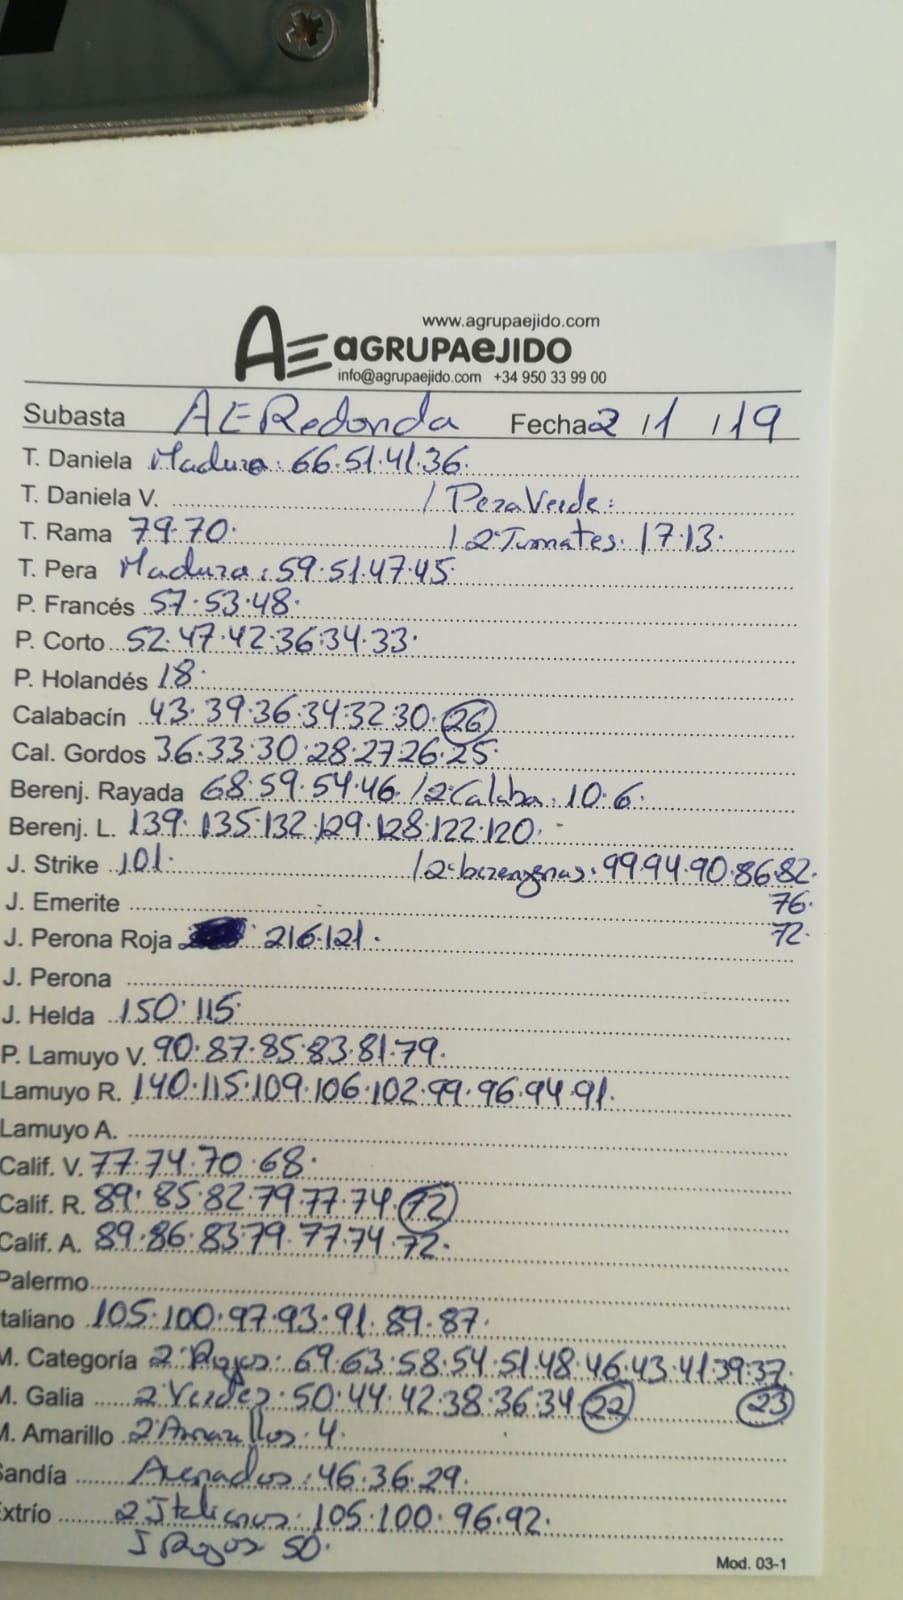 www.agrupaejido.com
AE aGRUPAeJIDO
info@agrupaejido.com +34 950 33 99 00
Subasta AE Redonda Fecha 2 / 1 / 19
T. Daniela Madura: 66.51.41.36.
T. Daniela V. / Pera Verde:
T. Rama 79.70. / 2ª Tomates. 17.13.
T. Pera Madura: 59.51.47.45.
P. Francés 57.53.48.
P. Corto 52.47.42.36.34.33.
P. Holandés 18.
Calabacín 43.39.36.34.32.30.26
Cal. Gordos 36.33.30.28.27.26.25
Berenj. Rayada 68.59.54.46. / 2ª Calaba. 10.6.
Berenj. L. 139.135.132.129.128.122.120.
J. Strike 101. / 2ª berengenas. 99.94.90.86.82.
J. Emerite 76.
J. Perona Roja 216.121. 72.
J. Perona
J. Helda 150.115.
P. Lamuyo V. 90.87.85.83.81.79.
Lamuyo R. 140.115.109.106.102.99.96.94.91.
Lamuyo A.
Calif. V. 77.74.70.68.
Calif. R. 89.85.82.79.77.74.72
Calif. A. 89.86.83.79.77.74.72.
Palermo
taliano 105.100.97.93.91.89.87.
M. Categoría 2ª Rojos: 69.63.58.54.51.48.46.43.41.39.37.
M. Galia 2ª Verdes. 50.44.42.38.36.34.22 23
M. Amarillo 2ª Amarillos. 4.
Sandía Asenados: 46.36.29.
Extrío 2ª Italianos. 105.100.96.92.
J Rojos 50.
Mod. 03-1